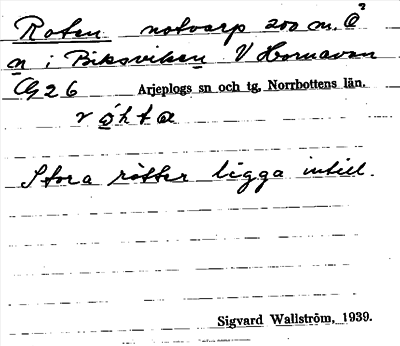 Roten notvarp 200 m. O
n i Biksviken V Hornavan
G 26 Arjeplogs sn och tg, Norrbottens län.
Stora rötter ligga intill.
Sigvard Wallström, 1939.